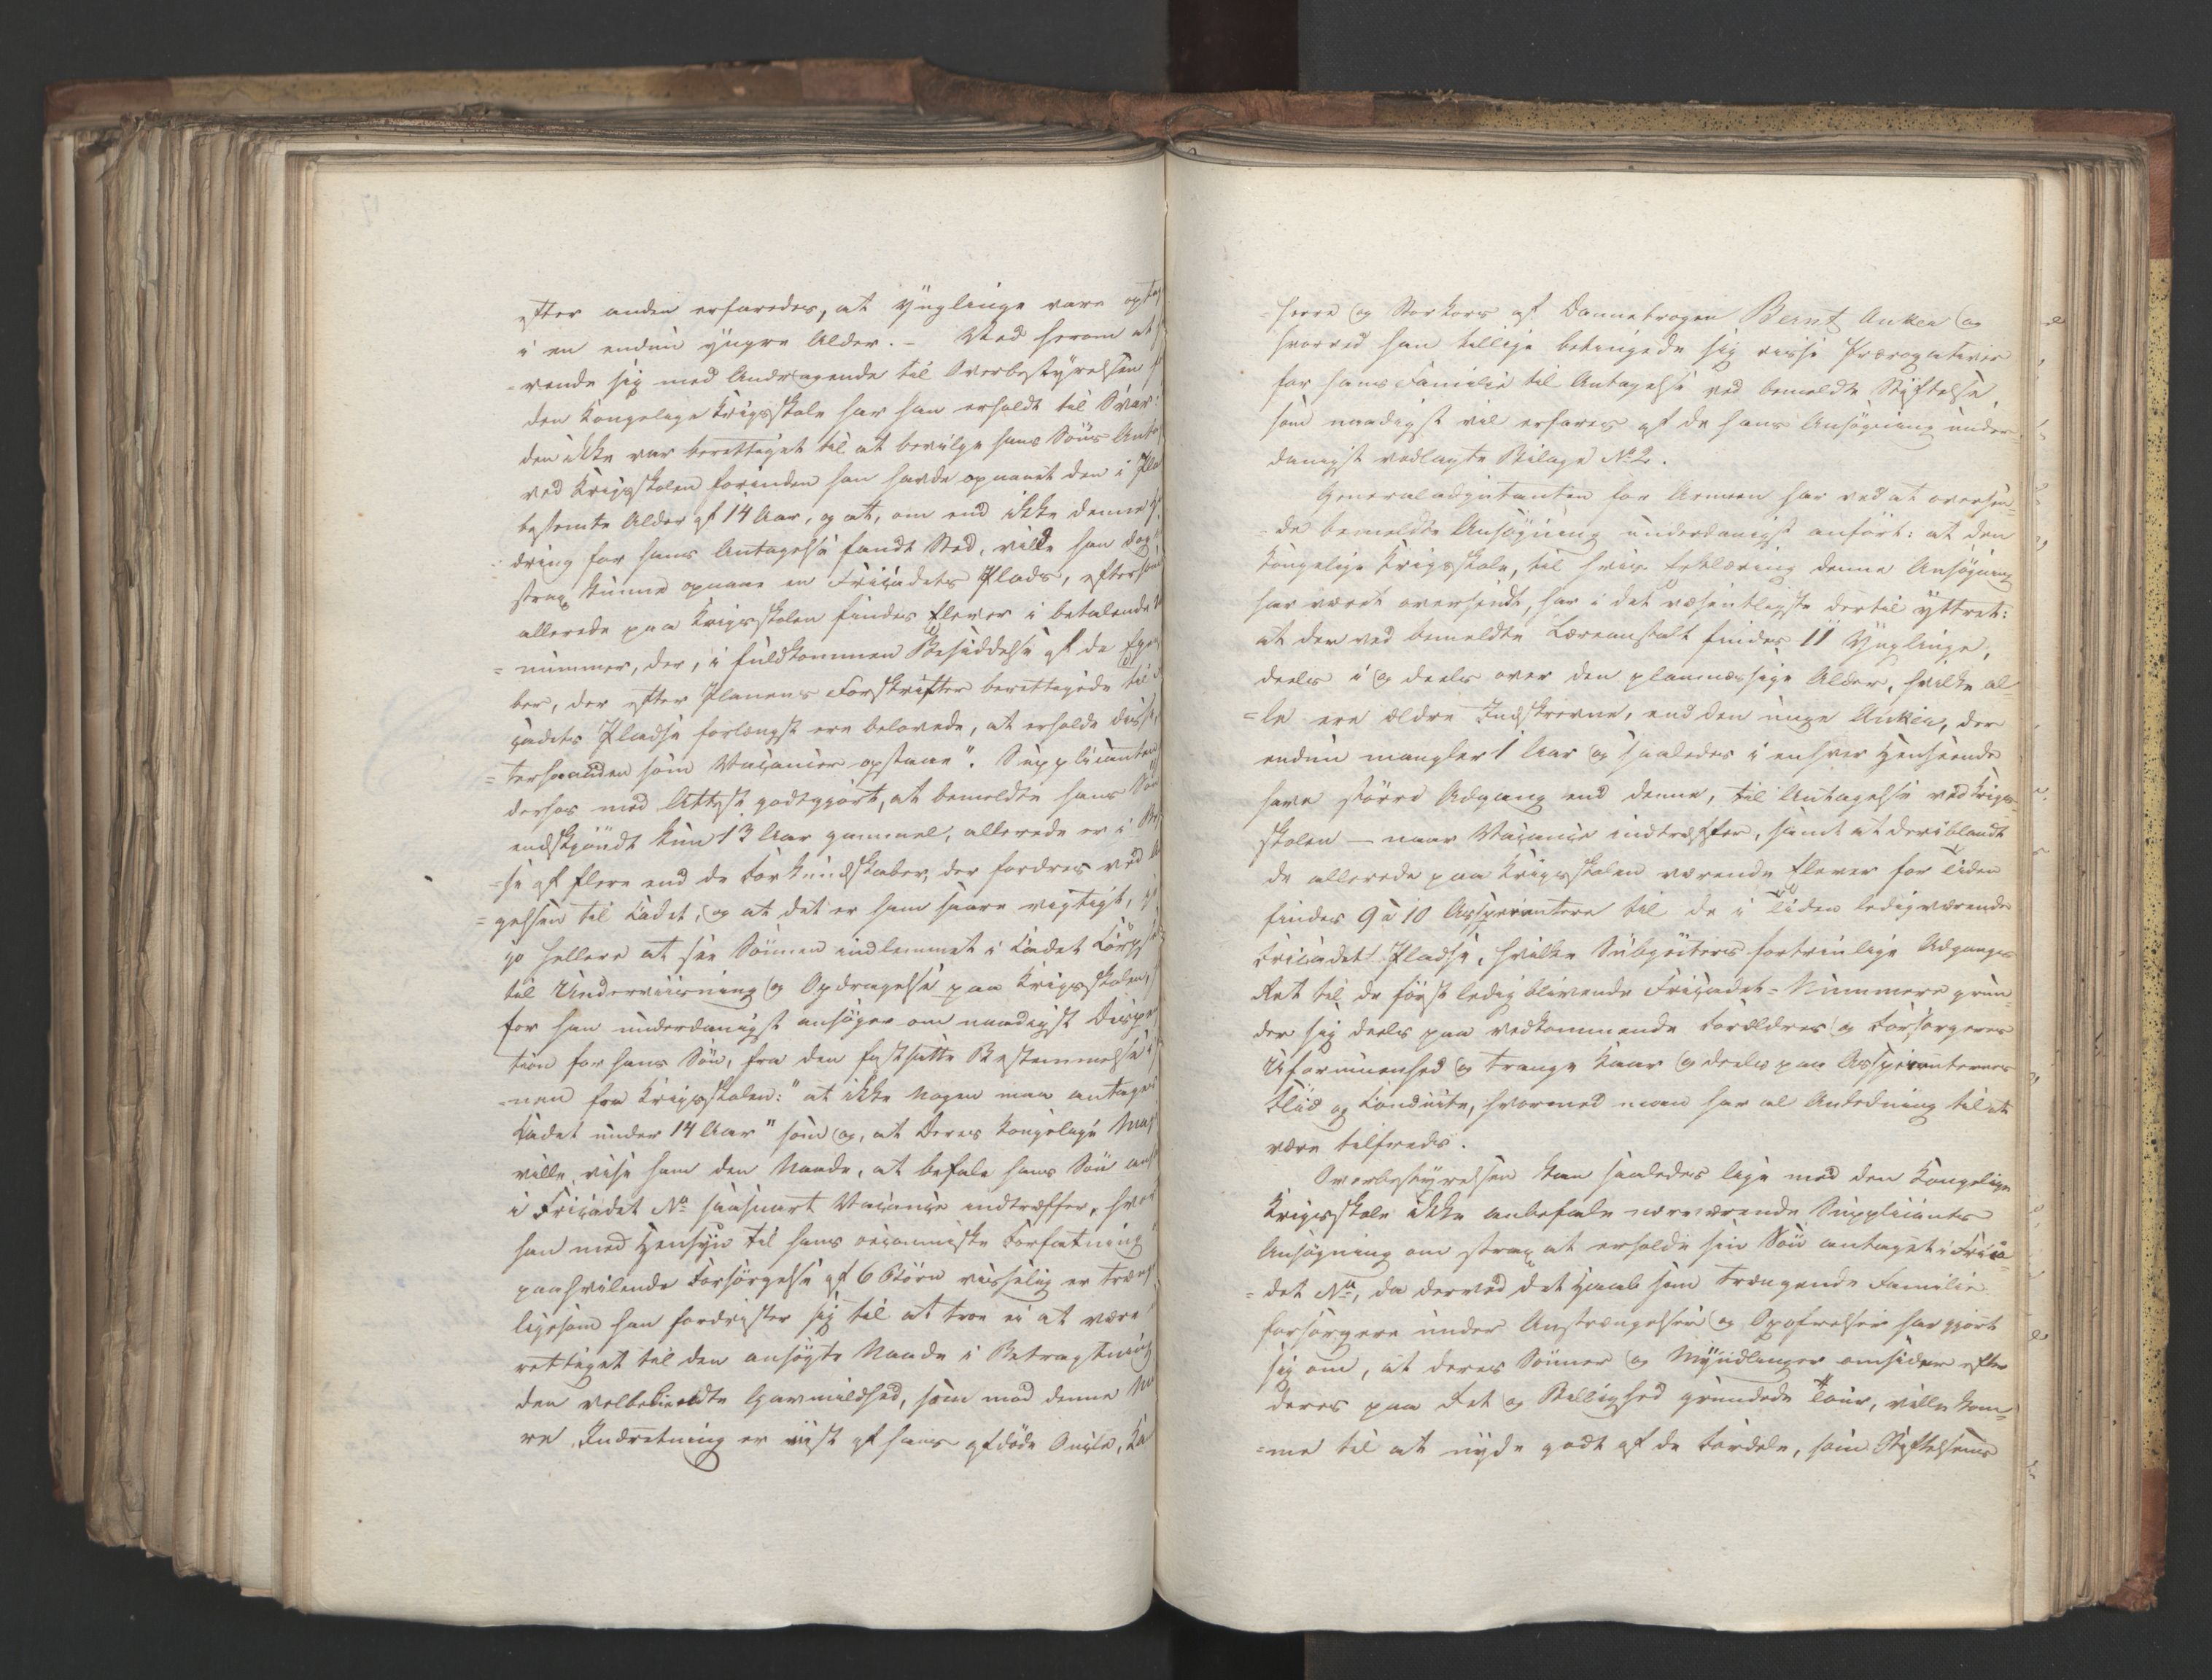 efter anden erfaredes, at Ynglinge vare optag
i en endnu yngre Alder. – Ved herom at h
=vende sig med Andragende til Overbestyrelsen f
den Kongelige Krigsskole har han erholdt til Svar:
den ikke var berettiget til at bevilge hans Søns Anta
ved Krigsskolen forinden han havde opnaaet den i Pla
bestemte Alder af 14 Aar, og at, om end ikke denne H
dring for hans Antagelse fandt Sted, vilde han dog
strax kunne opnaae en Fricadets Plads, eftersom
allerede paa Krigsskolen findes Elever i betalende
=nummer, der, i fuldkommen Besiddelse af de Egen
ber, der efter Planens Forskrifter berettigede til
cadets Pladse forlængst ere belovede, at erholde disse,
=terhaanden som Vacancer opstaae". Supplicanten
derhos med Attest godtgjort, at bemeldte hans Søn
endskjøndt kun 13 Aar gammel, allerede er i Bes
=se af flere end de Forkundskaber, der fordres ved A
=gelsen til Cadet, og at det er ham saare vigtigt, j
jo hellere at see Sønnen indlemmet i Cadet Corps
til Underviisning og Opdragelse paa Krigsskolen,
for han underdanigst ansøger om naadigst Dispen
tion for hans Søn, fra den fastsatte Bestemmelse i
=nen for Krigsskolen: "at ikke Nogen maa antages
Cadet under 14 Aar" som og, at Deres Kongelige Maj
ville vise ham den Naade, at befale hans Søn ans
i Fricadet No saasnart Vacance indtræffer, hvor
han med Hensyn til hans oeconomiske Forfatning
paahvilende Forsørgelse af 6 Börn visselig er træng
ligesom han fordrister sig til at troe ei at være
rettiget til den ansøgte Naade i Betragtning
den velbekiendte Gavmildhed, som mod denne
re Indretning er viist af hans afdøde Oncle, Ka
=herre og Storkors af Dannebrogen Bernt Anker og
hvorved han tillige betingede sig visse Prærogativer
for hans Familie til Antagelse ved bemeldte Stiftelse,
som naadigst vil erfares af de hans Ansøgning under
danigst vedlagte Bilage No 2.
Generaladjutanten for Armeen har ved at oversen
=de bemeldte Ansøgning underdanigst anført: at den
Kongelige Krigsskole, til hvis Erklæring denne Ansøgning
har været oversendt, har i det væsentligste dertil yttret:
at der ved bemeldte Læreanstalt findes 11 Ynglinge,
deels i og deels over den planmæssige Alder, hvilke al
=le ere ældre Indskrevne, end den unge Anker, der
endnu mangler 1 Aar og saaledes i enhver Henseende
have større Adgang end denne, til Antagelse ved Krigs
skolen – naar Vacance indtræffer, samt at deriblandt
de allerede paa Krigsskolen værende Elever for Tiden
findes 9 à 10 Aspirantere til de i Tiden ledigværende
Fricadet Pladse, hvilke Subjecters fortrinlige Adgangs
Ret til de først ledig blivende Fricadet-Nummere grun
der sig deels paa vedkommende Forældres og Forsørgeres
Uformuenhed og trange Kaar og deels paa Aspiranternes
Flid og Conduite, hvormed man har al Anledning til at
være tilfreds.
Overbestyrelsen kan saaledes lige med den Kongelige
Krigsskole ikke anbefale nærværende Supplicants
Ansøgning om strax at erholde sin Søn antaget i Frica
=det No, da derved det Haab som trængende Familie
forsørgere under Anstrængelser og Opofrelser har gjort
sig om, at deres Sønner og Myndlinger omsider efter
deres paa Ret og Billighed grundede Tour, ville kom=
=me til at nyde godt af de Fordele, som Stiftelsens